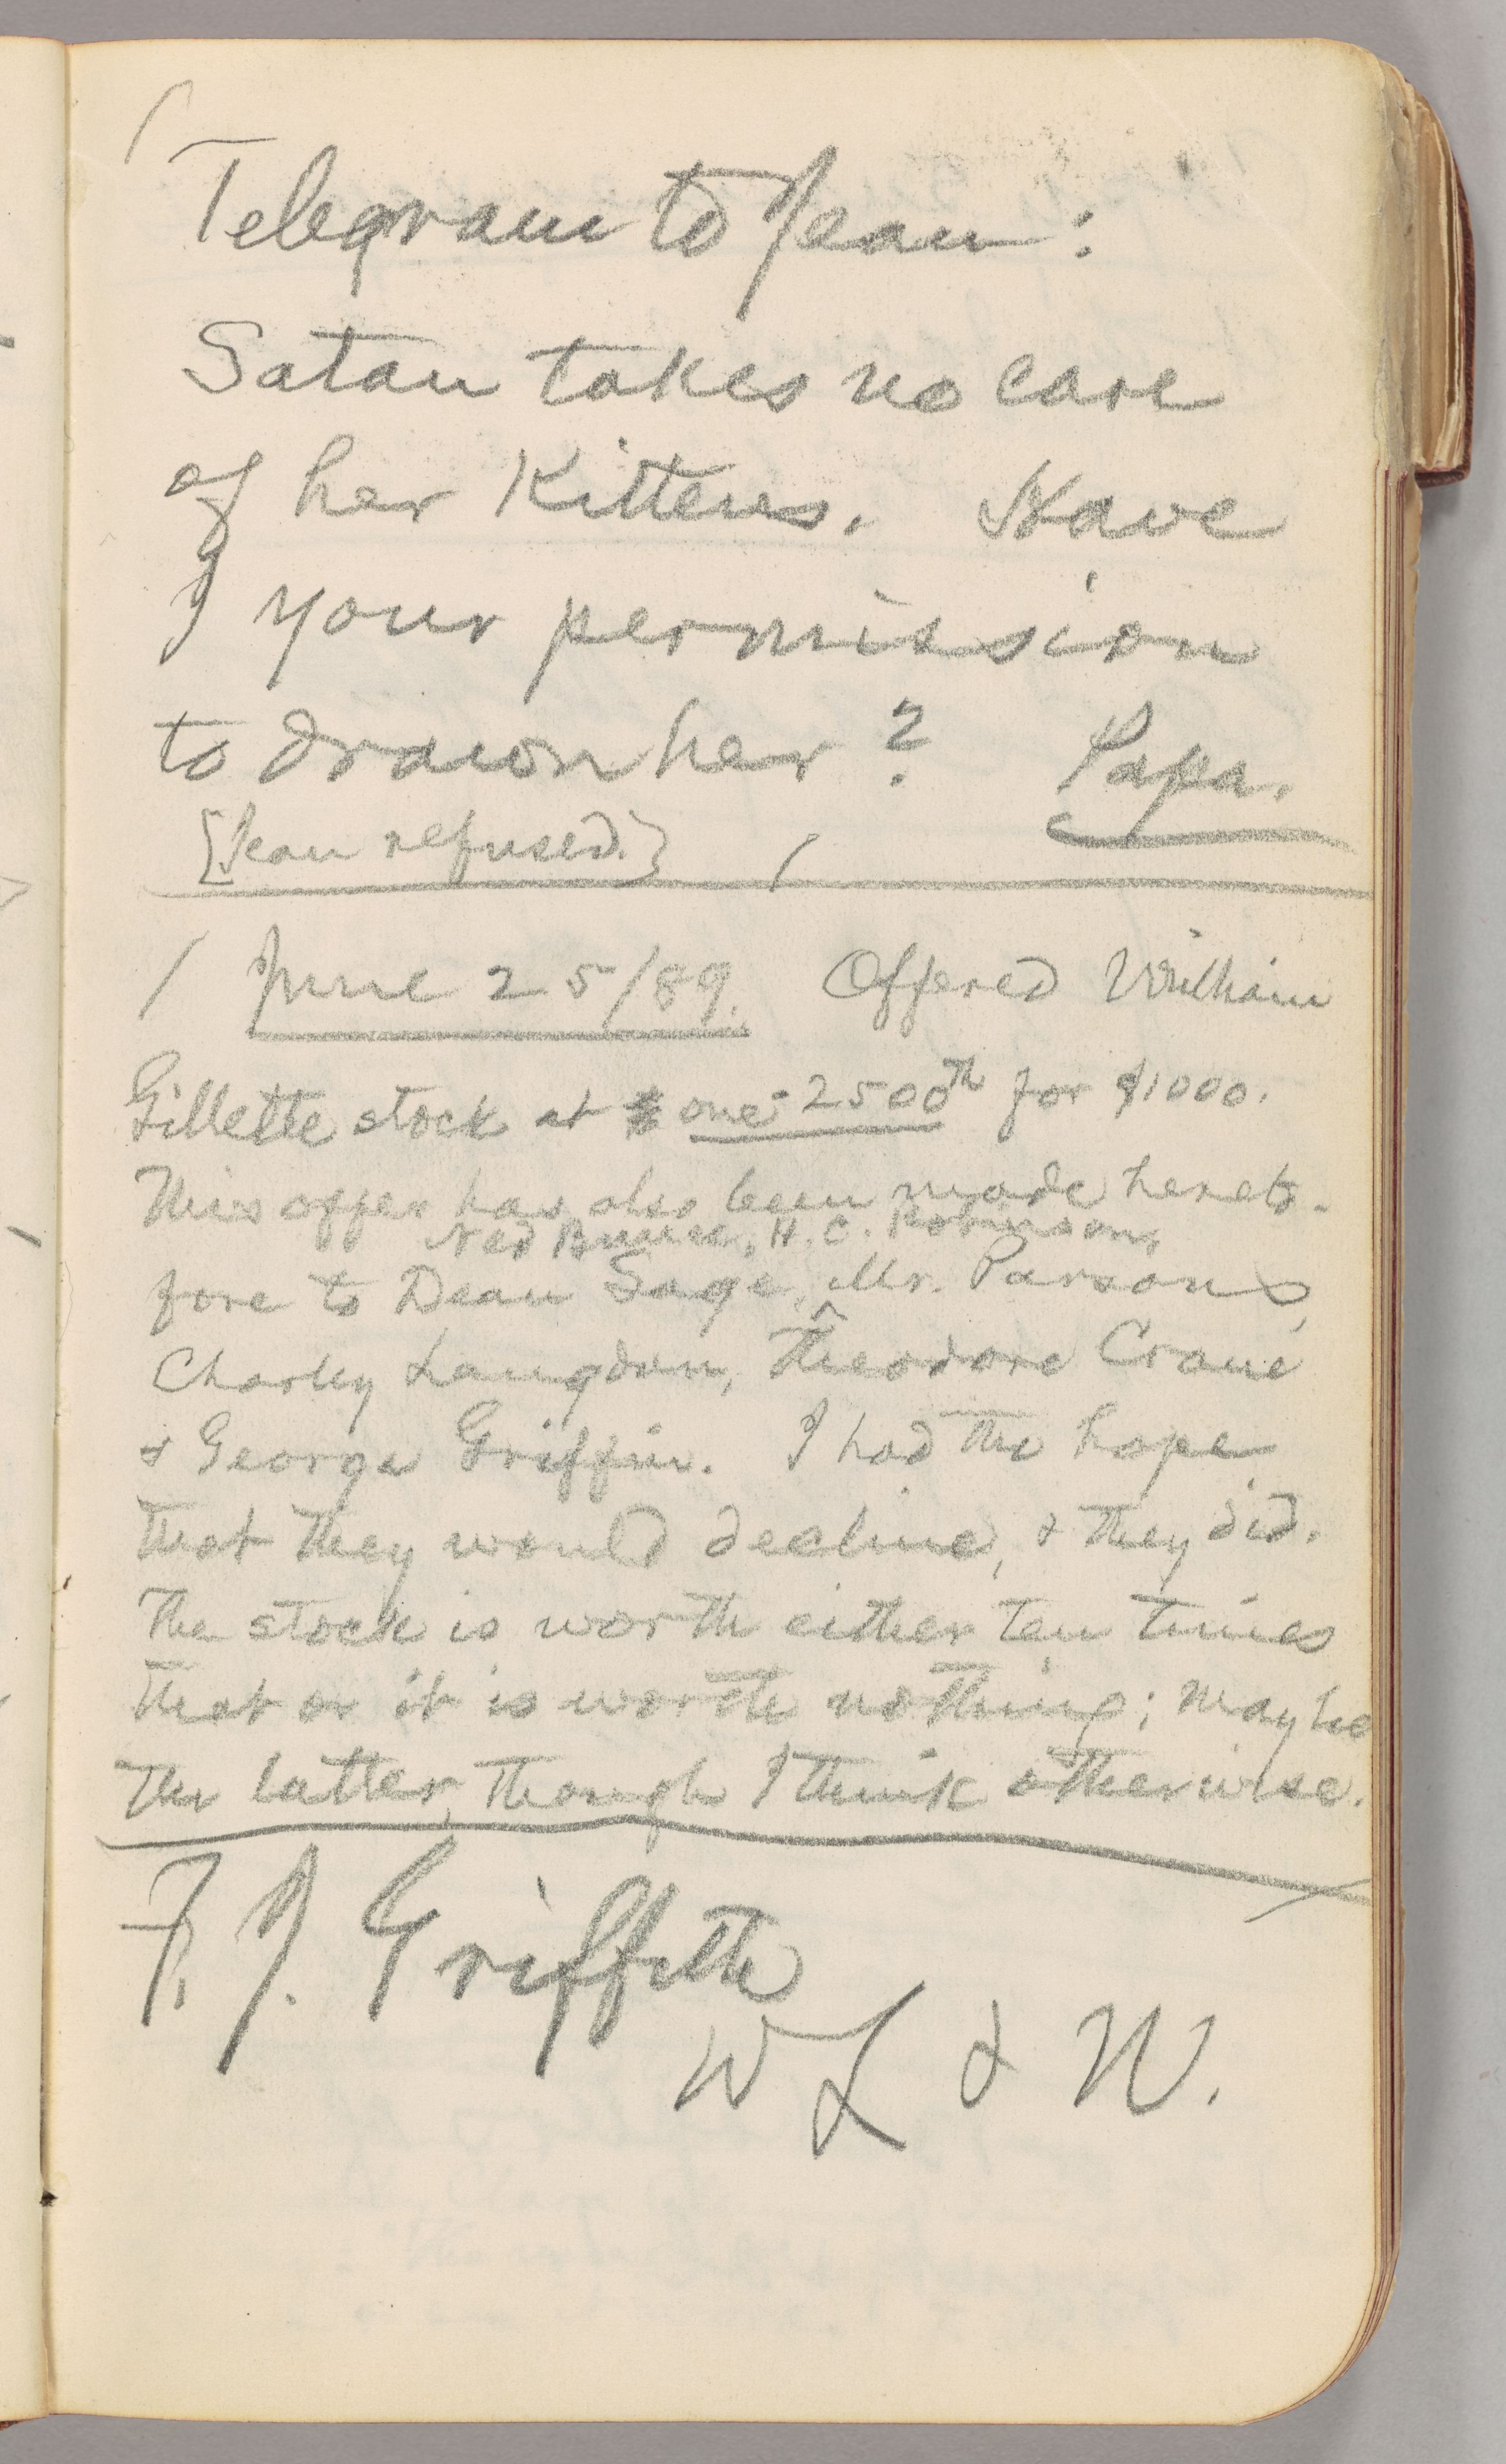 Telegram to Jean:
Satan takes no care
of her Kittens. Have
I your permission
to drown her? Papa.
[Jean refused.]
June 25/89. Offered William
Gillette stock at one-2500th for $1000.
This offer has also been made hereto-
Ned Bunce, H. C. Robinson,
fore to Dean Sage, Mr. Parsons,
Charley Langdon, Theodore Crane
& George Griffin. I had the hope
that they would decline, & they did.
The stock is worth either ten times
that or it is worth nothing; maybe
the latter, though I think otherwise.
F. J. Griffith
W L & W.